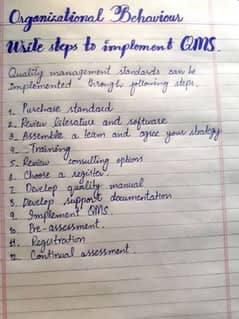 Organizational Behaviour
Write steps to implement QMS.
Quality management standards can be
implemented through following steps.
1. Purchase standard
2. Review literature and software
3. Assemble a team and agree your strategy
4. Training
5. Review consulting options
6. Choose a register
7. Develop quality manual
8. Develop support documentation
9. Implement QMS.
10. Pre-assessment.
11. Registration
12. Continual assessment.